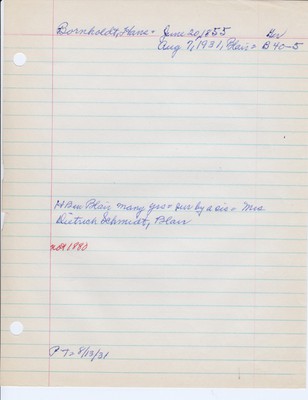 Bornholdt, Hans - June 20, 1855 Ger
Aug 7, 1931, Blair - B 40-5
H Bin Blair many yrs - sur by a sis - Mrs
Dietrich Schmidt, Blair
not 1880
P T - 8/13/31